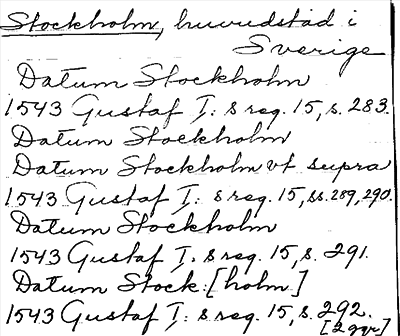 Stockholm, huvudstad i
Sverige
Datum Stockholm
1543 Gustaf I: s reg. 15, s. 283.
Datum Stockholm
Datum Stockholm vt supra
1543 Gustaf I: s reg. 15, ss. 289, 290.
Datum Stockholm
1543 Gustaf I. s reg. 15, s. 291.
Datum Stock: [holm]
1543 Gustaf I: s reg. 15, s. 292.
[2 ggr]